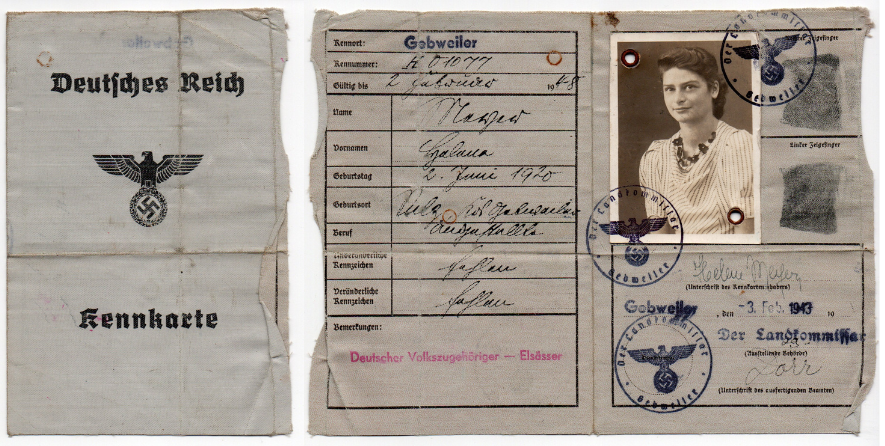 Gebweiler
Deutsches Reich
Kennkarte
Kennort: Gebweiler
Kennummer: K 01077
Gültig bis 2 Februar 1948
Name
Vornamen
Geburtstag 2. Juni 1920
Geburtsort
Beruf Angestellte
Unveränderliche
Kennzeichen fehlen
Veränderliche
Kennzeichen fehlen
Bemerkungen:
Deutscher Volkszugehöriger — Elsässer
Der Landkommissar
Gebweiler
Rechter Zeigefinger
Linker Zeigefinger
Der Landkommissar
Gebweiler
(Unterschrift des Kennkarteninhabers)
Gebweiler, den -3. Feb. 1943 19
Der Landkommissar
(Ausstellende Behörde)
(Unterschrift des ausfertigenden Beamten)
Der Landkommissar
Gebweiler